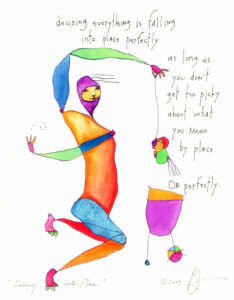 deciding everything is falling
into place perfectly
as long as
you don't
get too picky
about what
you mean
by place.
Or perfectly.
"Falling into Place"